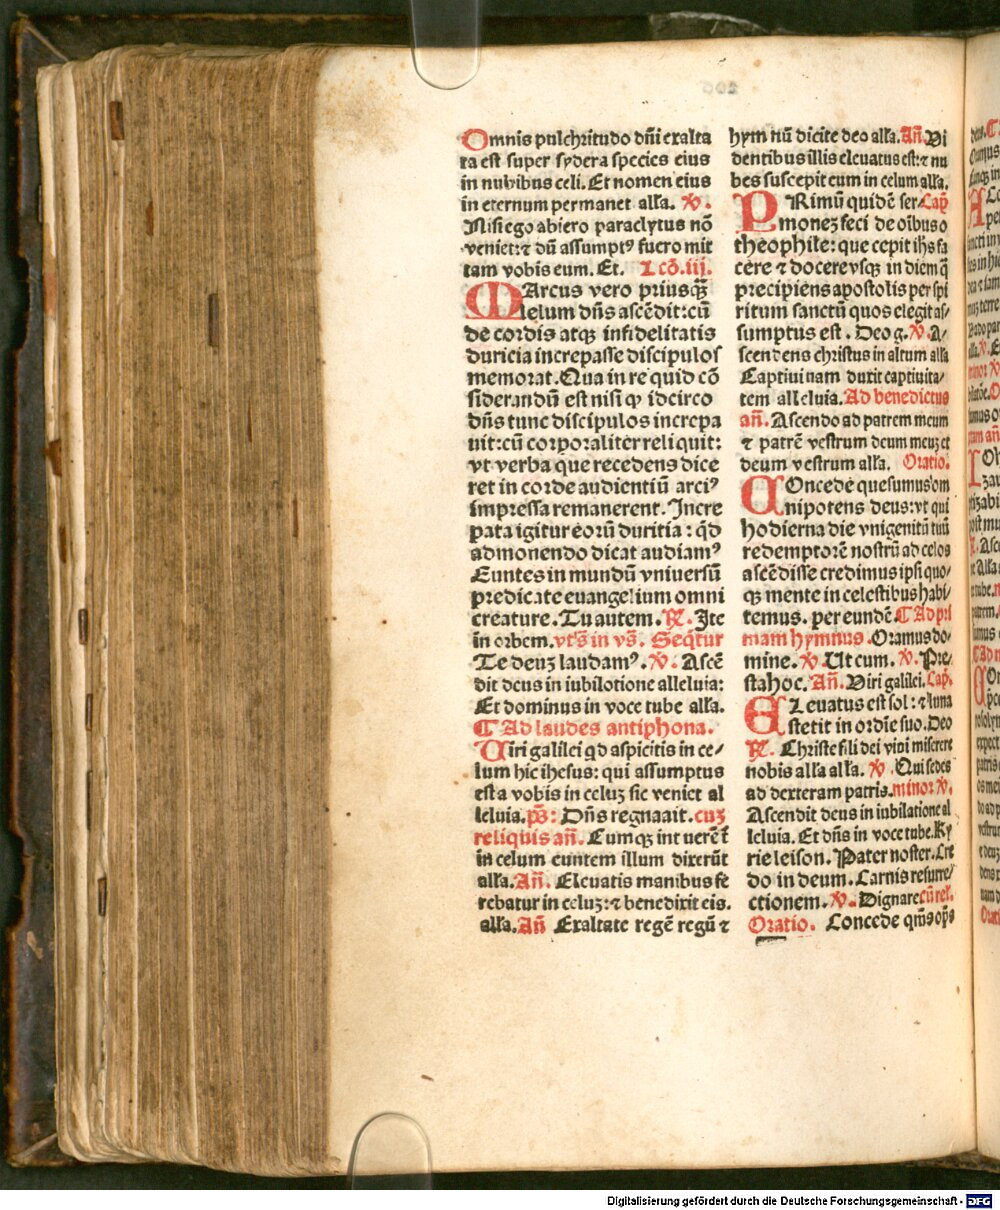 Omnis pulchritudo dñi exalta
ta est super sydera species eius
in nubibus celi. Et nomen eius
in eternum permanet alľa. ℣.
Nisi ego abiero paraclytus nō
veniet: ⁊ dū assumptꝰ fuero mit
tam vobis eum. Et. Lcō. iij.
MArcus vero priusqȝ
lelum dñs ascēdit: cū
de cordis atqȝ infidelitatis
duricia increpasse discipulos
memorat. Qua in re quid cō
siderandū est nisi ꝙ idcirco
dñs tunc discipulos increpa
uit: cū corporaliter reliquit:
vt verba que recedens dice
ret in corde audientiū arciꝰ
impressa remanerent. Incre
pata igitur eorū duritia: qđ
admonendo dicat audiamꝰ
Euntes in mundū vniuersū
predicate euangelium omni
creature. Tu autem. ℟. Ite
in orbem. vts̄ in vs̄. Seq̄tur
Te deuȝ laudamꝰ. ℣. Ascē
dit deus in iubilotione alleluia:
Et dominus in voce tube alľa.
⸿ Ad laudes antiphona.
Uiri galilei qđ aspicitis in ce/
lum hic ihesus: qui assumptus
est a vobis in celuȝ sic veniet al
leluia. ps̄: Dñs regnaait. cuȝ
reliquis añ. Cumqȝ int uerēt̄
in celum euntem illum dixerūt
alľa. Añ. Eleuatis manibus fe
rebatur in celuȝ: ⁊ benedixit eis.
alľa. Añ Exaltate regē regū ⁊
hym nū dicite deo alľa. Añ. Ui
dentibus illis eleuatus est: ⁊ nu
bes suscepit eum in celum alľa.
PRimū quidē ser- Cap̄
monez feci de oībus o
theophile: que cepit ihs̄ fa
cere ⁊ docere vsqȝ in diem q̄
precipiens apostolis per spi
ritum sanctū quos elegit as/
sumptus est. Deo g. ℣. A/
scendens christus in altum alľa
Captiui nam duxit captiuita/
tem alleluia. Ad benedictus
añ. Ascendo ad patrem meum
⁊ patrē vestrum deum meuȝ et
deum vestrum alľa. Oratio.
COncede quesumus om
nipotens deus: vt qui
hodierna die vnigenitū tuū
redemptorē nostrū ad celos
ascēdisse credimus ipsi quo/
qȝ mente in celestibus habi/
temus. per eundē. ⸿ Ad pri
mam hymnus. Oramus do/
mine. ℣. Ut cum. ℣. Pre/
sta hoc. Añ. Uiri galilei. Cap̄.
ELeuatus est sol: ⁊ luna
stetit in ordīe suo. Deo
℟. Christe fili dei viui miserere
nobis alľa alľa. ℣. Qui sedes
ad dexteram patris. minor ℣.
Ascendit deus in iubilatione al
leluia. Et dñs in voce tube. Ky
rie leison. Pater noster. Cre
do in deum. Carnis resurre/
ctionem. ℣. Dignare cū rel.
Oratio. Concede qm̄s op̄s
Digitalisierung gefördert durch die Deutsche Forschungsgemeinschaft - DFG